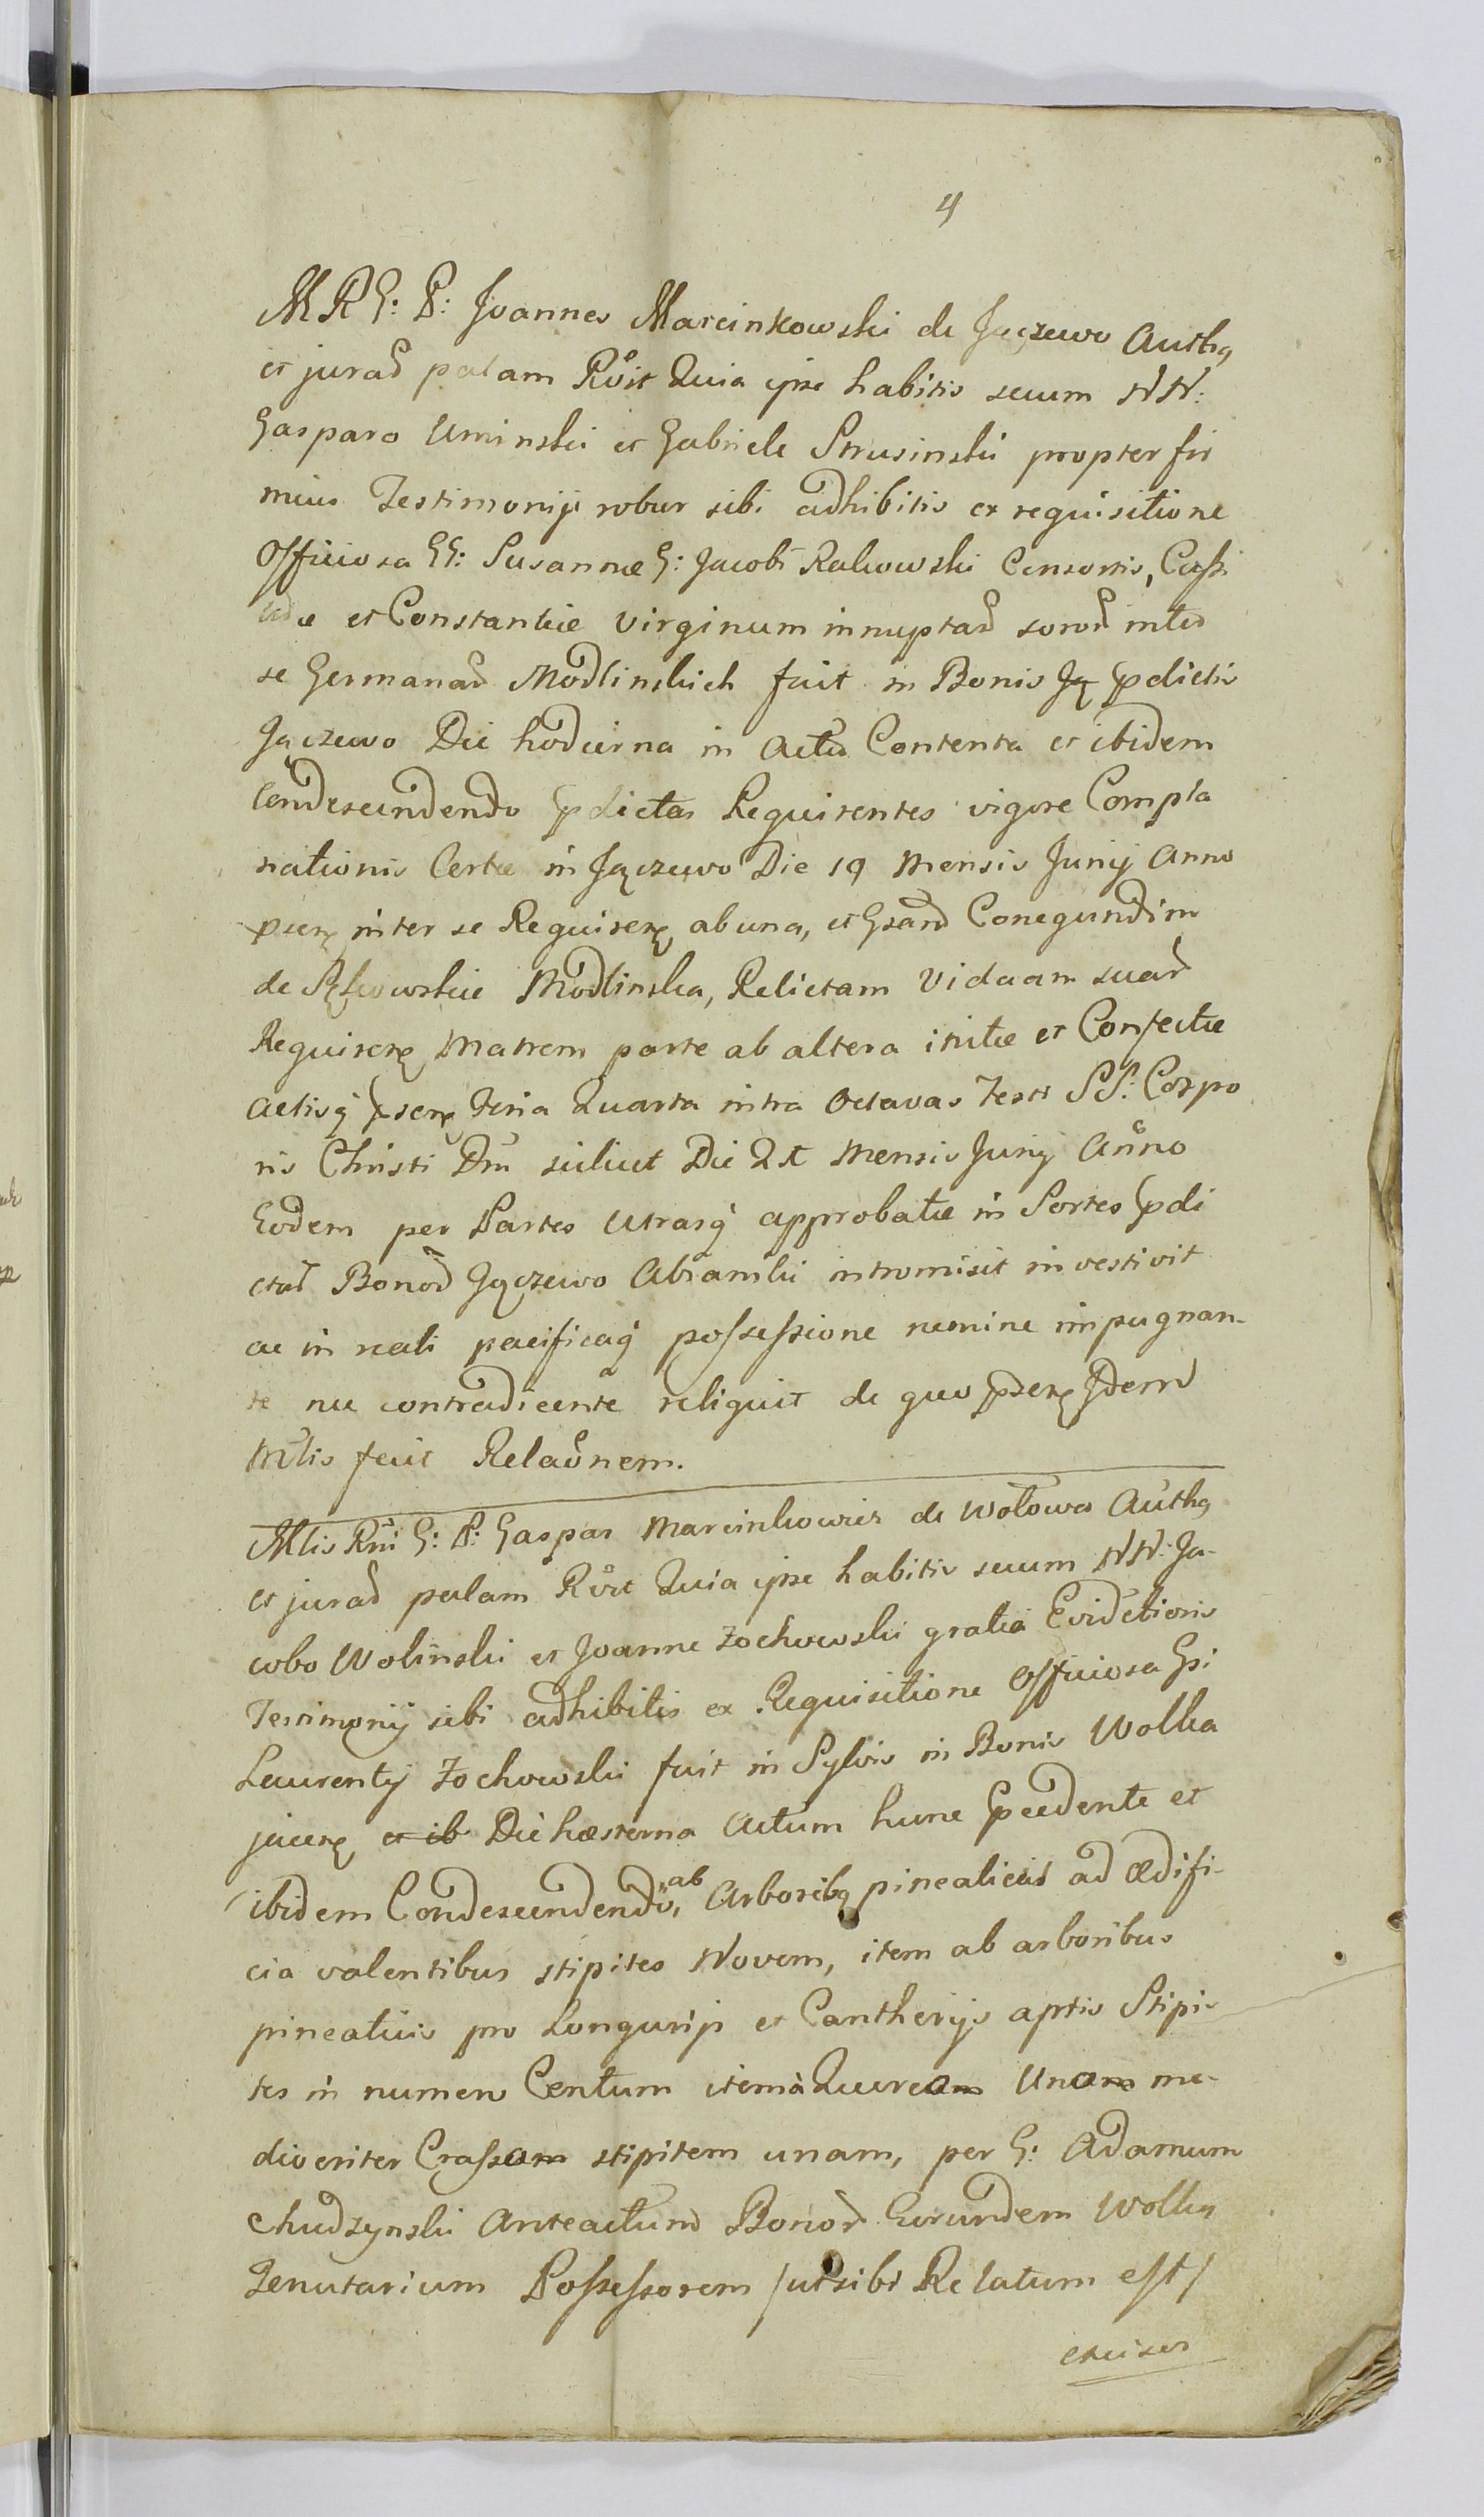 4
M R G: P: Joannes Marcinkowski de Jączewo Authq
et jurad palam Rōit Quia ipse habitis secum NN:
Gasparo Uminski et Gabriele Strusinski propter fir
mius Testimonij robur sibi adhibitis ex requisitione
Officiosa GG: Susannæ G: Jacobi Rakowski Consortis,
et Constantiæ Virginum innuptar soror inter
se Germanar Modlinskich fuit in Bonis Ją pdictis
Jączewo Die hodierna in Actu Contenta et ibidem
Condescendendo pdictas Requirentes vigore Compla
nationis Certæ in Jączewo Die 19 Mensis Junij Anno
pser inter se Requirer ab una, et Gsam Conegundim
de Modlinska, Relictam Viduam suar
Requirer Matrem parte ab altera initæ et Confectæ
Actisq pser Feria Quarta intra Octavas Festi SS: Corpo
ris Christi Dni scilicet Die 21 Mensis Junij Anno
Eodem per Partes Utrasq approbatæ in Sortes pdi
ctar Bonor Jączewo Abramki intromisit investivit
ac in reali pacificaq possessione nemine impugnan-
te nec contradicente reliquit de quo pser Idem
Mtlis fecit Relaōnem.
Mlis Rni G: P: Gaspar Marcinkowicz de Wolowa Authq
et jurad palam Rōit Quia ipse habitis secum NN: Ja-
cobo Wolinski et Joanne Zochowski gratia Evidētioris
Testimonij sibi adhibitis ex Requisitione Officiosa Gsi
Laurentij Zochowski fuit in Sylvis in Bonis Wolka
jacen et ib Die hæsterna Actum hunc pcedente et
ibidem Condescendendo, ab Arboribq pinealicis ad ædifi-
cia valentibus stipites Novem, item ab arboribus
pineaticis pro Longurijs et Cantherijs aptis Stipi-
tes in numero Centum item à Quercam Unam me-
diocriter Crassam stipitem unam, per G: Adamum
Chudzynski Anteactum Bonor Eorundem Wolka
Tenutarium Possessorem /ut sibi Relatum est/
excisos